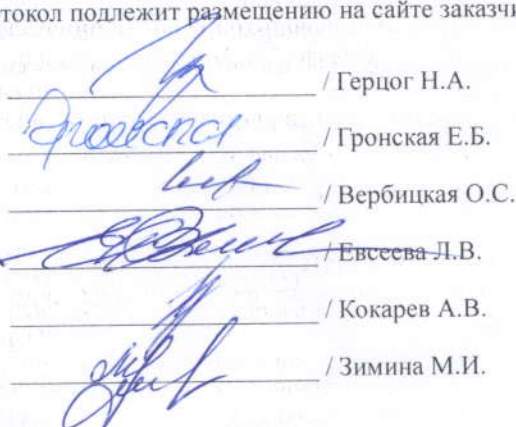 токол подлежит размещению на сайте заказчи
/ Герцог Н.А.
/ Гронская Е.Б.
/ Вербицкая О.С.
/ Евсеева Л.В.
/ Кокарев А.В.
/ Зимина М.И.